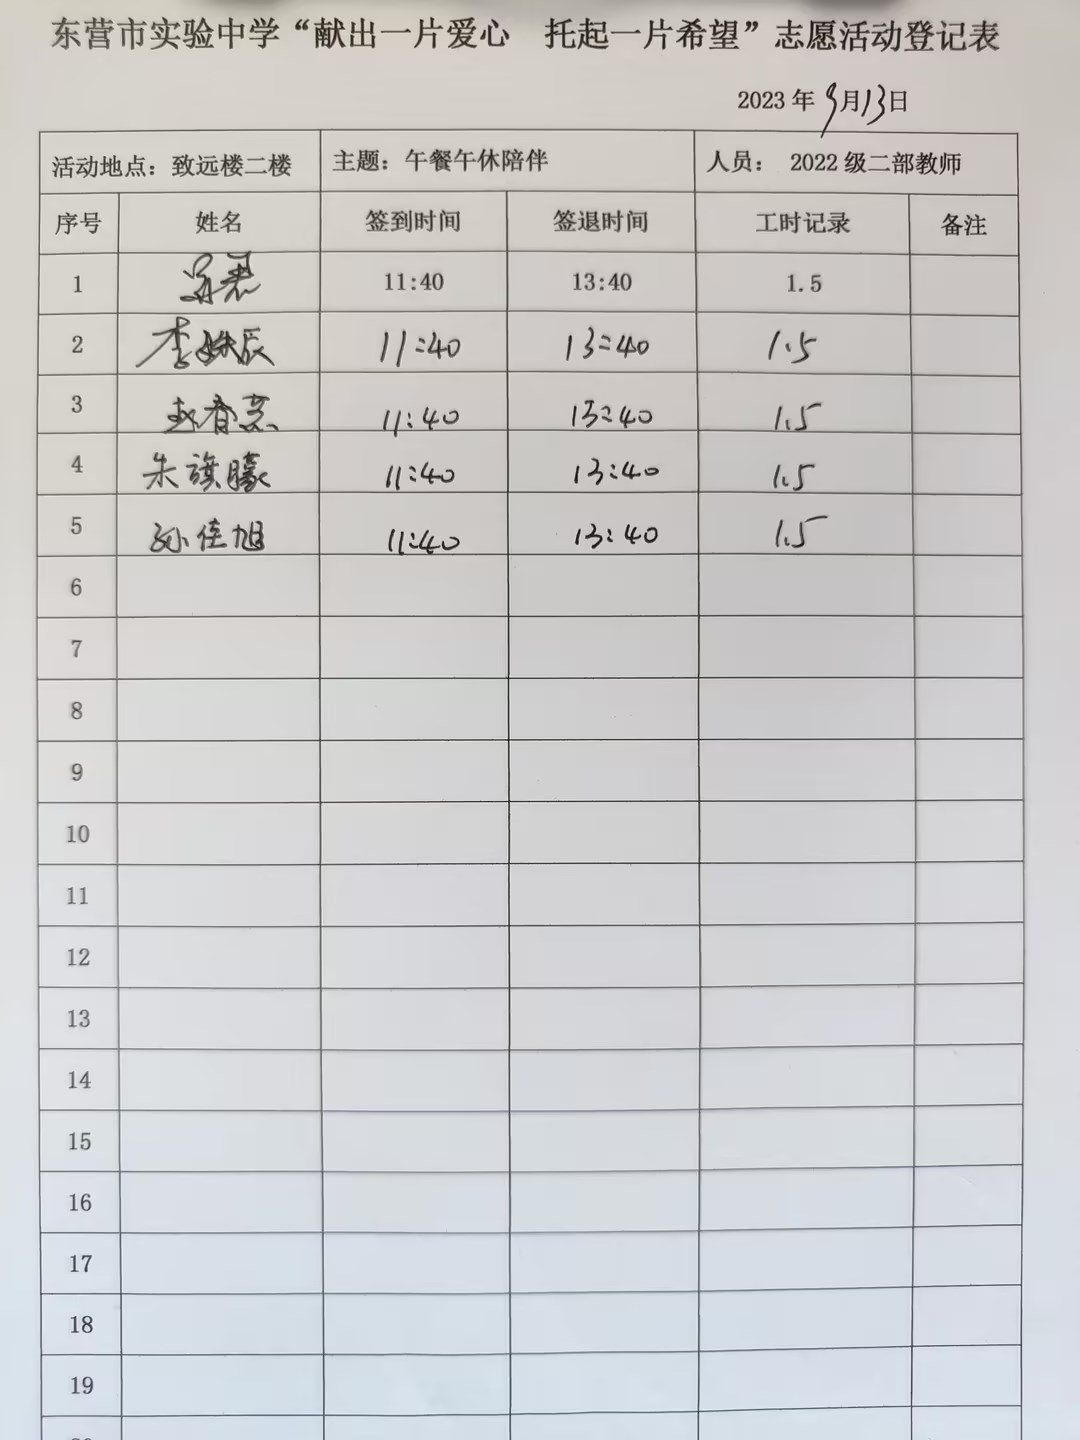 东营市实验中学“献出一片爱心 托起一片希望”志愿活动登记表
2023 年 9月13日
活动地点：致远楼二楼 主题：午餐午休陪伴 人员： 2022 级二部教师
序号 姓名 签到时间 签退时间 工时记录 备注
1 11:40 13:40 1.5
2 李姝辰 11:40 13:40 1.5
3 赵春 11:40 13:40 1.5
4 朱旗朦 11:40 13:40 1.5
5 孙佳旭 11:40 13:40 1.5
6
7
8
9
10
11
12
13
14
15
16
17
18
19